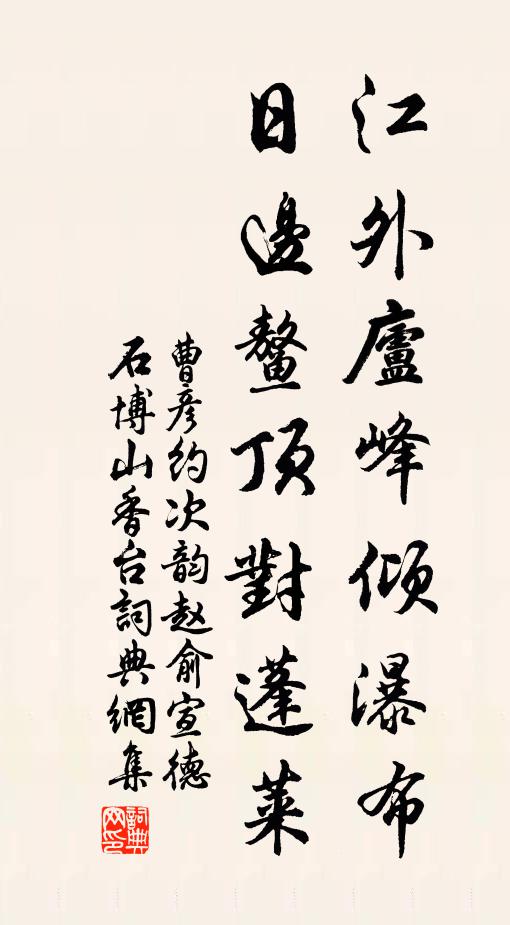 江外廬峰傾瀑布
日邊鼇頂對蓬萊
曹彦约次韵赵俞宣德
石博山香台詞典網集
詞典
网印